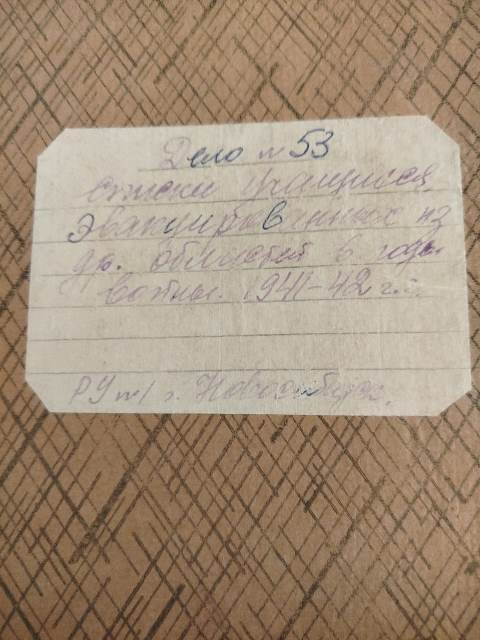 Дело № 53
списки учащихся
эвакуированных из
др. областей в годы
войны. 1941-42 г.г.
РУ №1 г. Новосибирск.